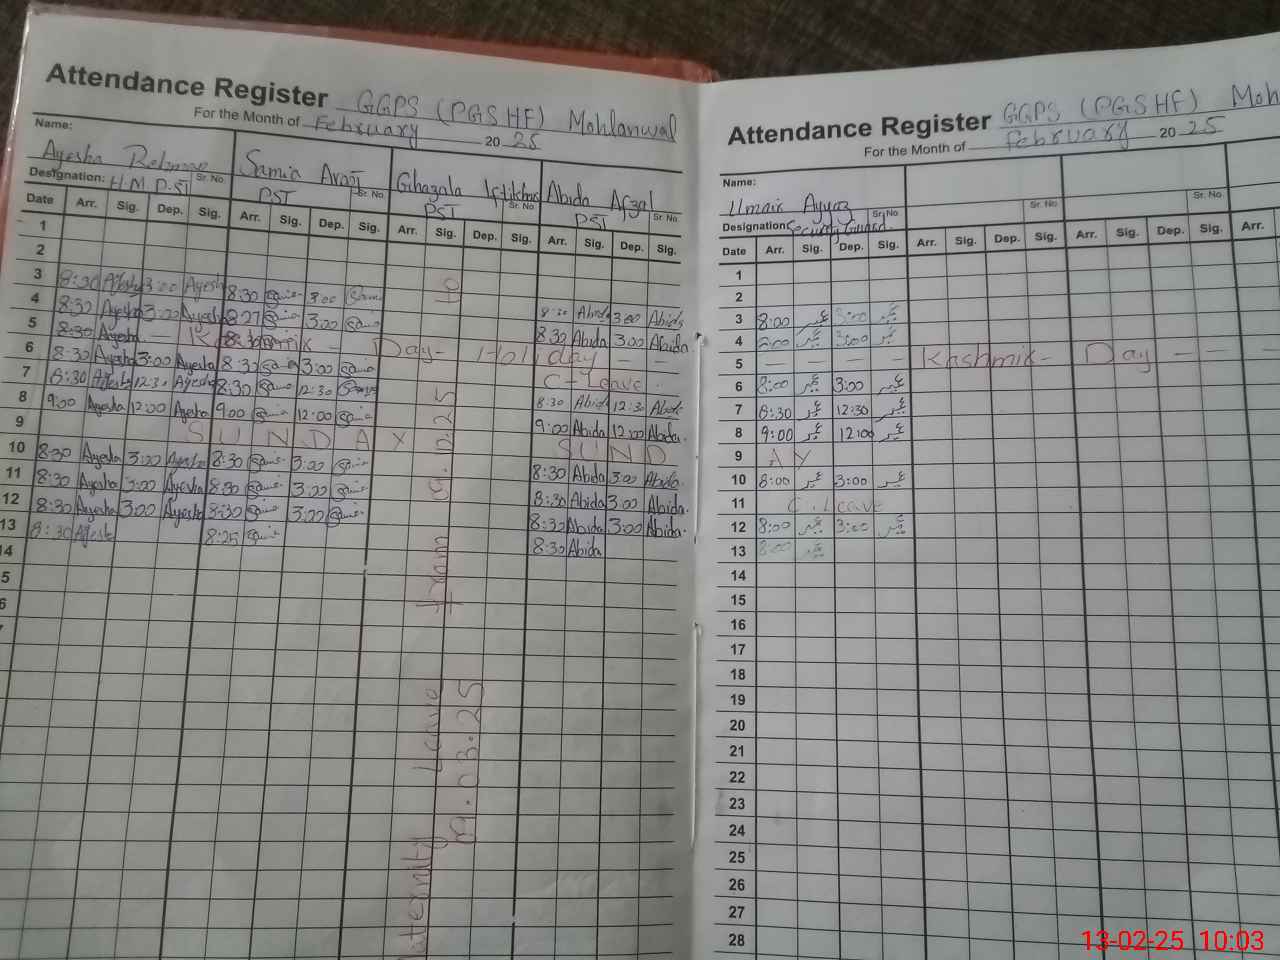 Attendance Register GGPS (PGSHF) Mohlanwal
For the Month of February 20 25
Name: Ayesha Samia Ghazala Abida Afzal
Designation: H.M PST Sr. No. PST Sr. No. PST Sr. No. PST Sr. No.
Date Arr. Sig. Dep. Sig. Arr. Sig. Dep. Sig. Arr. Sig. Dep. Sig. Arr. Sig. Dep. Sig.
1
2
3 8:30 Ayesha 3:00 Ayesha 8:30 3:00 8:30 Abida 3:00 Abida
4 8:30 Ayesha 3:00 Ayesha 8:27 3:00 8:30 Abida 3:00 Abida
5 8:30 Ayesha Kashmir - Day - Holiday — —
6 8:30 Ayesha 3:00 Ayesha 8:30 3:00 C-Leave
7 8:30 Ayesha 12:30 Ayesha 8:30 12:30 8:30 Abida 12:30 Abida
8 9:00 Ayesha 12:00 Ayesha 9:00 12:00 9:00 Abida 12:00 Abida
9 SUNDAY SUND
10 8:30 Ayesha 3:00 Ayesha 8:30 3:00 8:30 Abida 3:00 Abida
11 8:30 Ayesha 3:00 Ayesha 8:30 3:00 8:30 Abida 3:00 Abida
12 8:30 Ayesha 3:00 Ayesha 8:30 3:00 8:30 Abida 3:00 Abida
13 8:30 Ayesha 8:25 8:30 Abida
14
5
6
7
Leave From to
03.25
Attendance Register GGPS (PGSHF) Moh
For the Month of February 20 25
Name: Umair
Designation: Security Guard Sr. No. Sr. No. Sr. No.
Date Arr. Sig. Dep. Sig. Arr. Sig. Dep. Sig. Arr. Sig. Dep. Sig. Arr.
1
2
3 8:00 عمیر 3:00 عمیر
4 عمیر 3:00 عمیر
5 — — — — Kashmir - Day — —
6 8:00 عمیر 3:00 عمیر
7 8:30 عمیر 12:30 عمیر
8 9:00 عمیر 12:00 عمیر
9 AY
10 8:00 عمیر 3:00 عمیر
11 C.Leave
12 8:00 عمیر 3:00 عمیر
13 8:00 عمیر
14
15
16
17
18
19
20
21
22
23
24
25
26
27
28
13-02-25 10:03